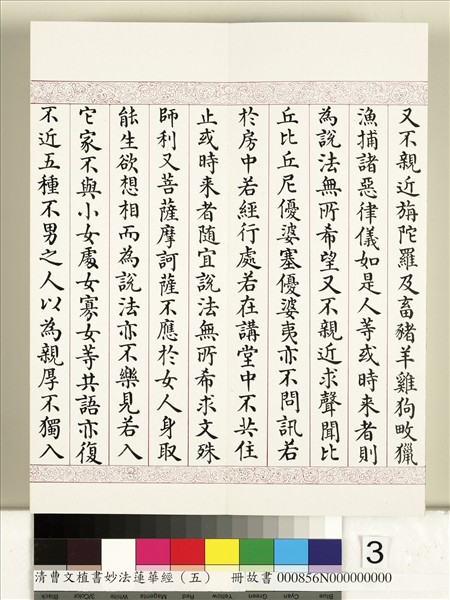 又不親近旃陀羅及畜豬羊雞狗畋獵
漁捕諸惡律儀如是人等或時來者則
為說法無所希望又不親近求聲聞比
丘比丘尼優婆塞優婆夷亦不問訊若
於房中若經行處若在講堂中不共住
止或時來者隨宜說法無所希求文殊
師利又菩薩摩訶薩不應於女人身取
能生欲想相而為說法亦不樂見若入
它家不與小女處女寡女等共語亦復
不近五種不男之人以為親厚不獨入
3
清曹文植書妙法蓮華經（五） 冊故書 000856N000000000
Black
3/Color
White
Magenta
Red
Yellow
Green
Cyan
Blue